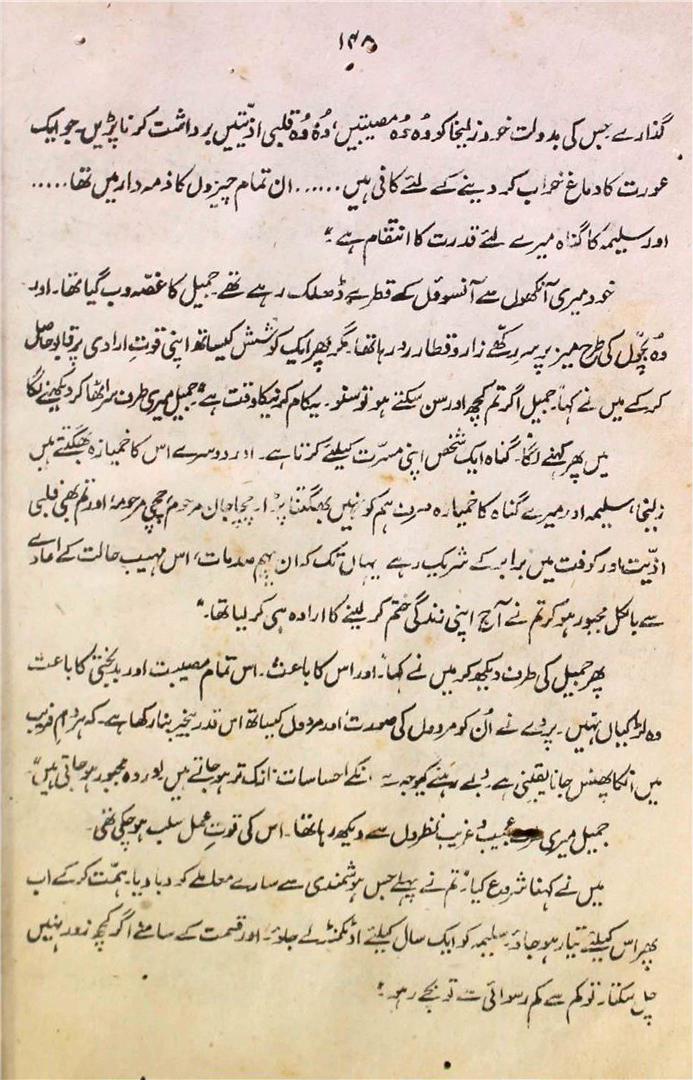 ۱۴۸
گذارے جس کی بدولت خود زلیخا کو وہ وہ مصیبتیں، وہ وہ قلبی اذیتیں برداشت کرنا پڑیں۔ جو ایک
عورت کا دماغ خراب کر دینے کے لئے کافی ہیں ...... ان تمام چیزوں کا ذمہ دار میں تھا .....
اور سلیمہ کا گناہ میرے لئے قدرت کا انتقام ہے"
خود میری آنکھوں سے آنسوؤں کے قطرے ڈھلک رہے تھے۔ جمیل کا غصہ دب گیا تھا۔ اور
وہ بچوں کی طرح میز پر سر رکھے زار و قطار رو رہا تھا۔ مگر پھر ایک کوشش کیساتھ اپنی قوتِ ارادی پر قابو حاصل
کر کے میں نے کہا۔ جمیل اگر تم کچھ اور سن سکتے ہو تو سنو۔ یہ کام کرنیکا وقت ہے" جمیل میری طرف سر اٹھا کر دیکھنے لگا
میں پھر کہنے لگا۔ گناہ ایک شخص اپنی مسرت کیلئے کرتا ہے۔ اور دوسرے اس کا خمیازہ بھگتتے ہیں
زلیخا، سلیمہ اور میرے گناہ کا خمیازہ صرف ہم کو نہیں بھگتنا پڑا۔ چچا جان مرحوم، چچی مرحومہ اور تم بھی قلبی
اذیت اور کوفت میں برابر کے شریک رہے یہاں تک کہ ان پیہم صدمات، اس مہیب حالت کے اعادے
سے بالکل مجبور ہو کر تم نے آج اپنی زندگی ختم کر لینے کا ارادہ ہی کر لیا تھا۔"
پھر جمیل کی طرف دیکھ کر میں نے کہا۔ اور اس کا باعث۔ اس تمام مصیبت اور بدبختی کا باعث
وہ لڑکیاں نہیں۔ پردے نے اُن کو مردوں کی صورت اور مردوں کیساتھ اس قدر بیخبر بنا رکھا ہے۔ کہ ہر دامِ فریب
میں انکا پھنس جانا یقینی ہے۔ دبے رہنے کیوجہ سے انکے احساسات نازک تر ہو جاتے ہیں اور وہ مجبور ہو جاتی ہیں"۔
جمیل میری عجیب و غریب نظروں سے دیکھ رہا تھا۔ اس کی قوتِ عمل سلب ہو چکی تھی۔
میں نے کہنا شروع کیا" تم نے پہلے جس ہوشمندی سے سارے معاملے کو دبا دیا۔ ہمت کر کے اب
پھر اس کیلئے تیار ہو جاؤ۔ سلیمہ کو ایک سال کیلئے اوٹکمنڈ لے جاؤ۔ اور قسمت کے سامنے اگر کچھ زور نہیں
چل سکتا۔ تو کم سے کم رسوائی سے تو بچے رہو۔"